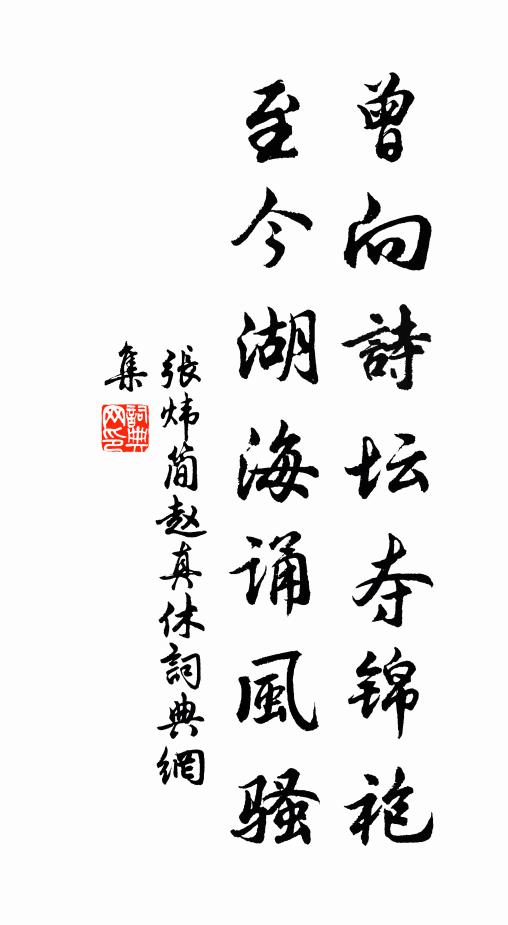 曾向詩坛夺锦袍
至今湖海诵風骚
張炜简赵真休詞典網
集
詞典
网印